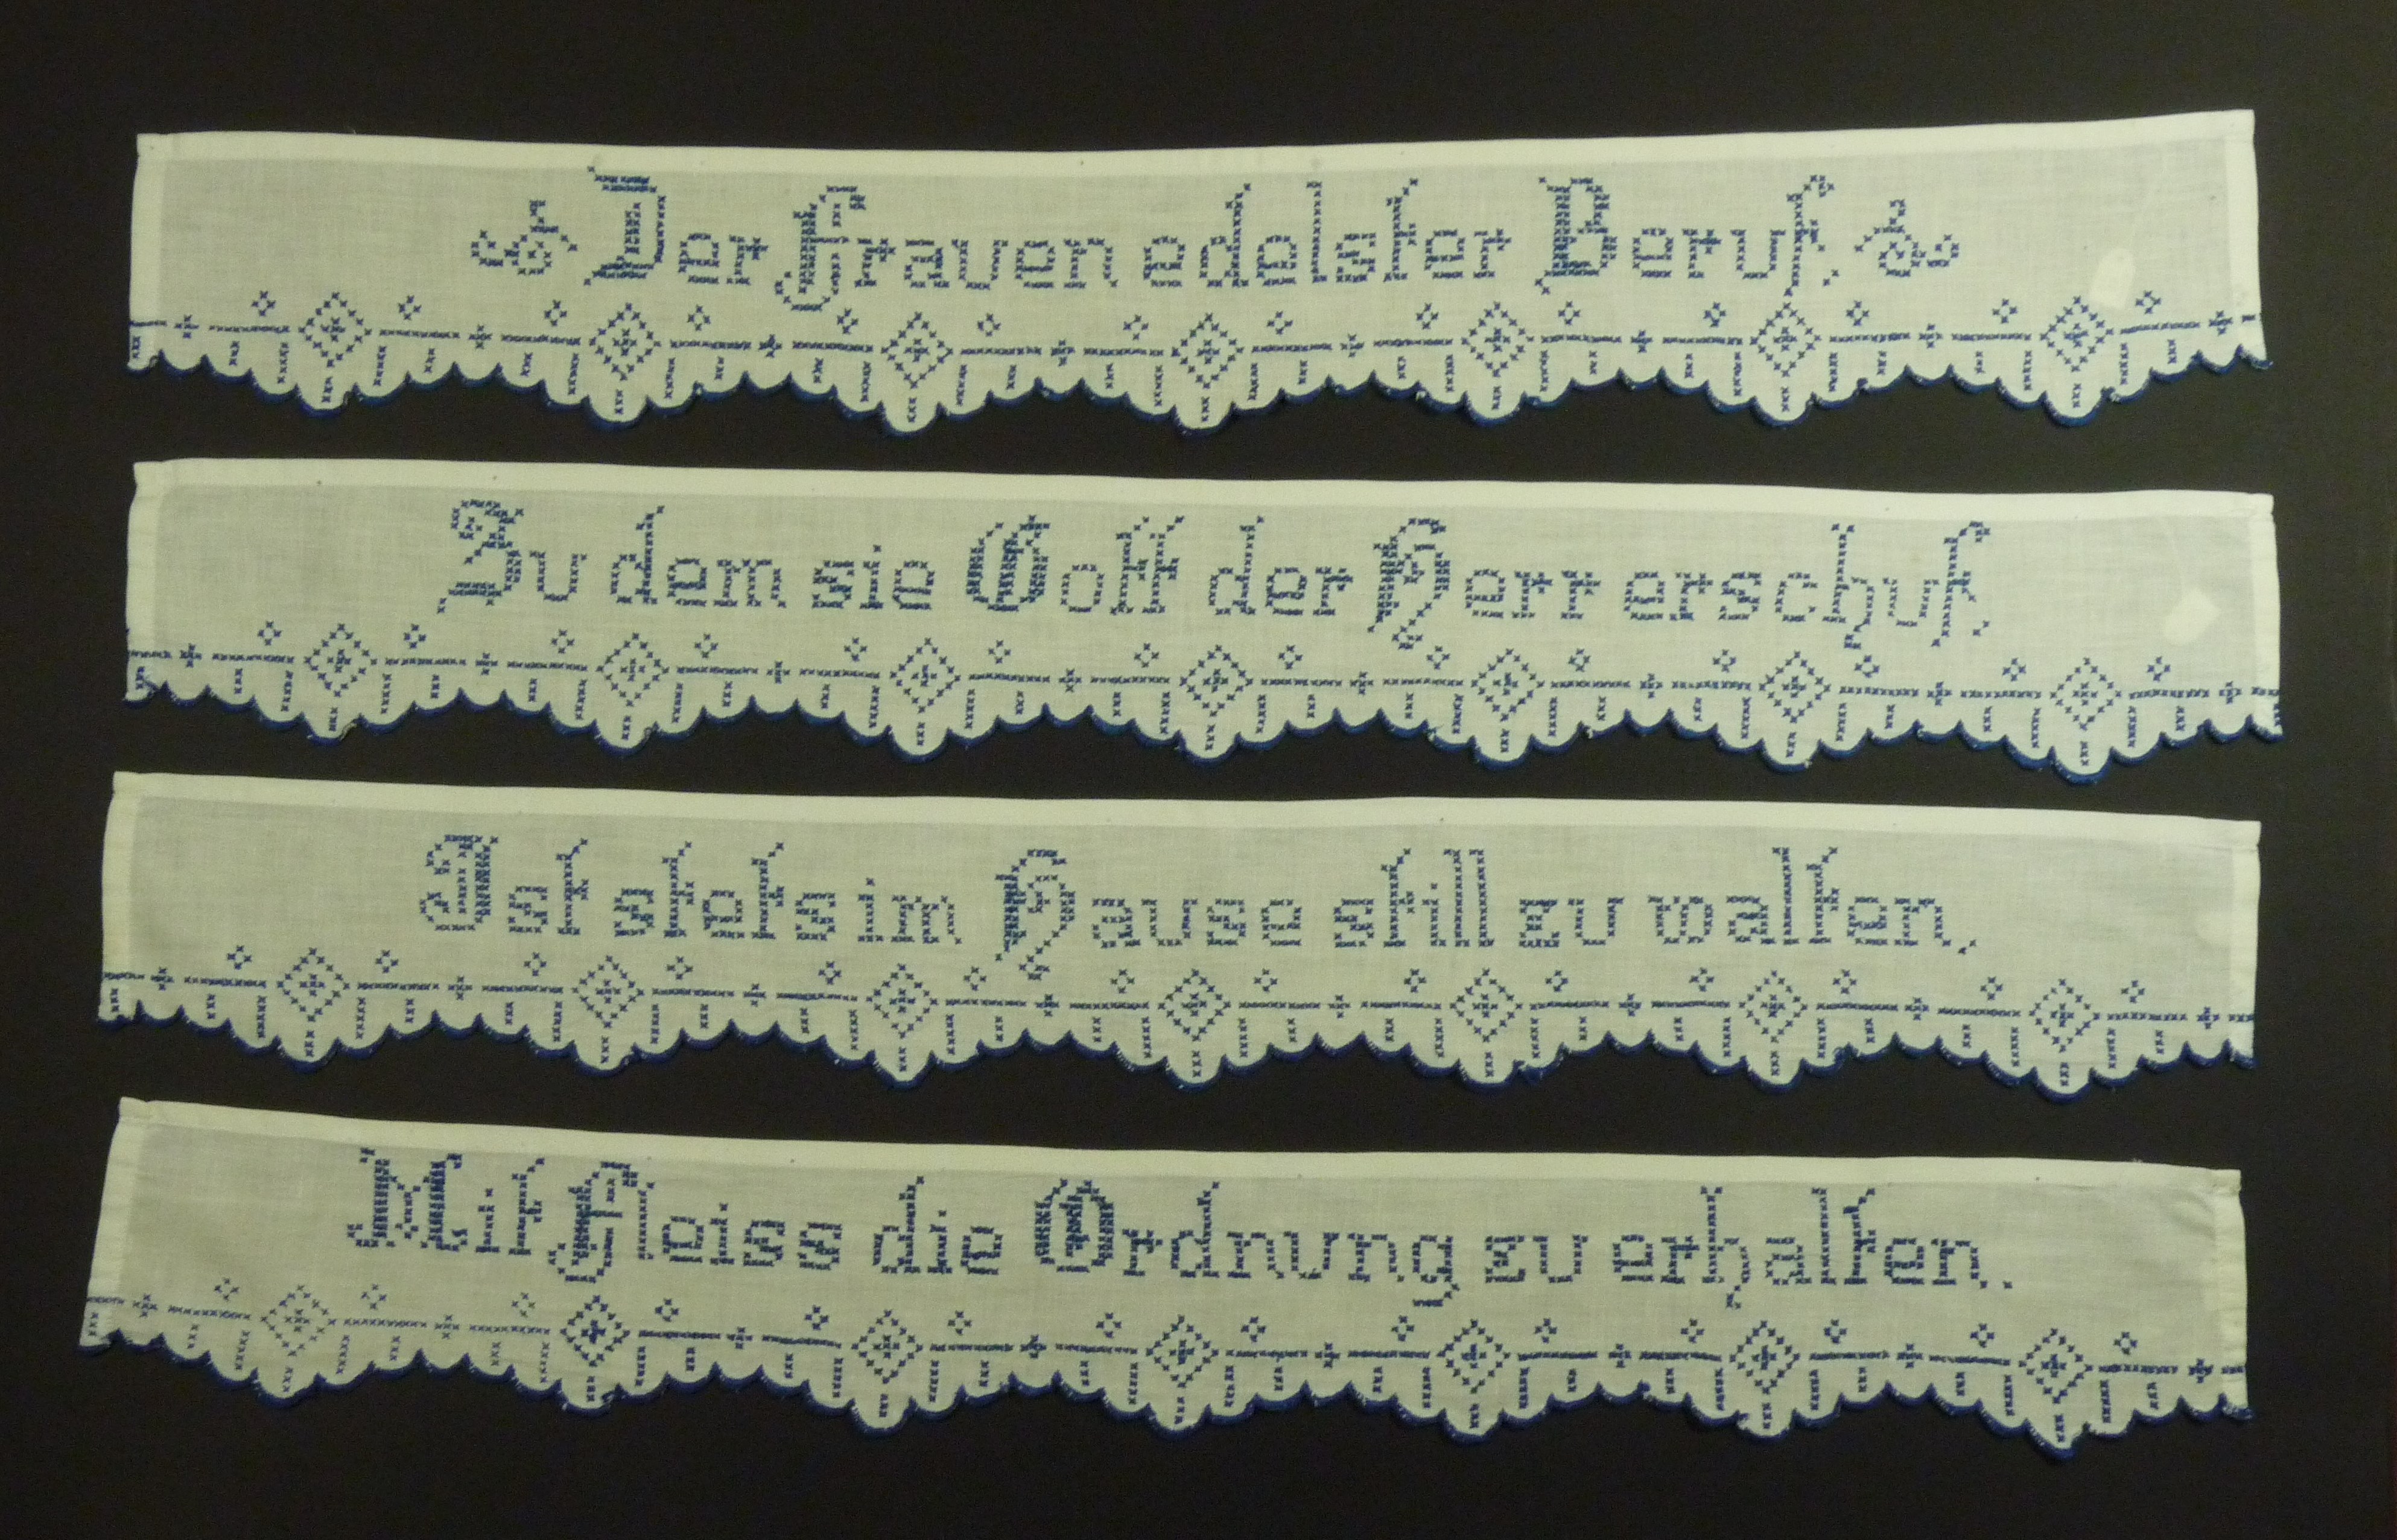 Der Frauen edelster Beruf,
Zu dem sie Gott der Herr erschuf,
Ist stets im Hause still zu walten,
Mit Fleiss die Ordnung zu erhalten.